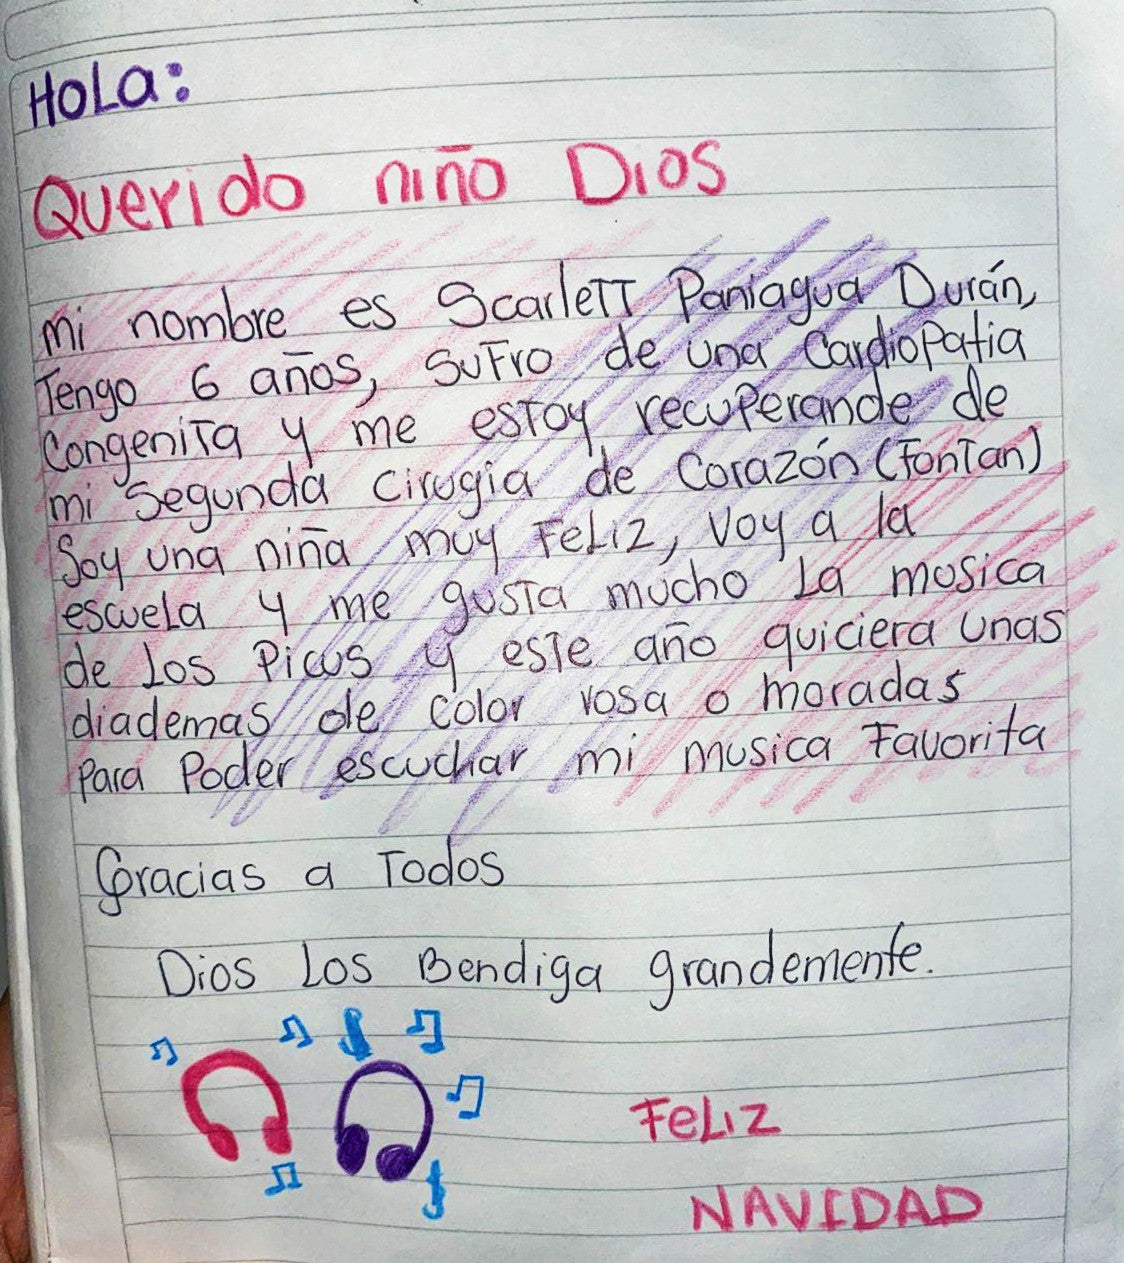 HOLa:
Querido niño Dios
mi nombre es Scarlett Paniagua Durán,
Tengo 6 años, sufro de una Cardiopatia
Congenita y me estoy recuperande de
mi Segunda cirugia de Corazón (Fontan)
Soy una niña muy FeLiz, Voy a la
escuela y me gusta mucho La mosica
de Los Picus y este año quiciera Unas
diademas de color rosa o moradas
Para Poder escuchar mi musica Favorita
Gracias a Todos
Dios Los Bendiga grandemente.
FeLiz
NAVIDAD